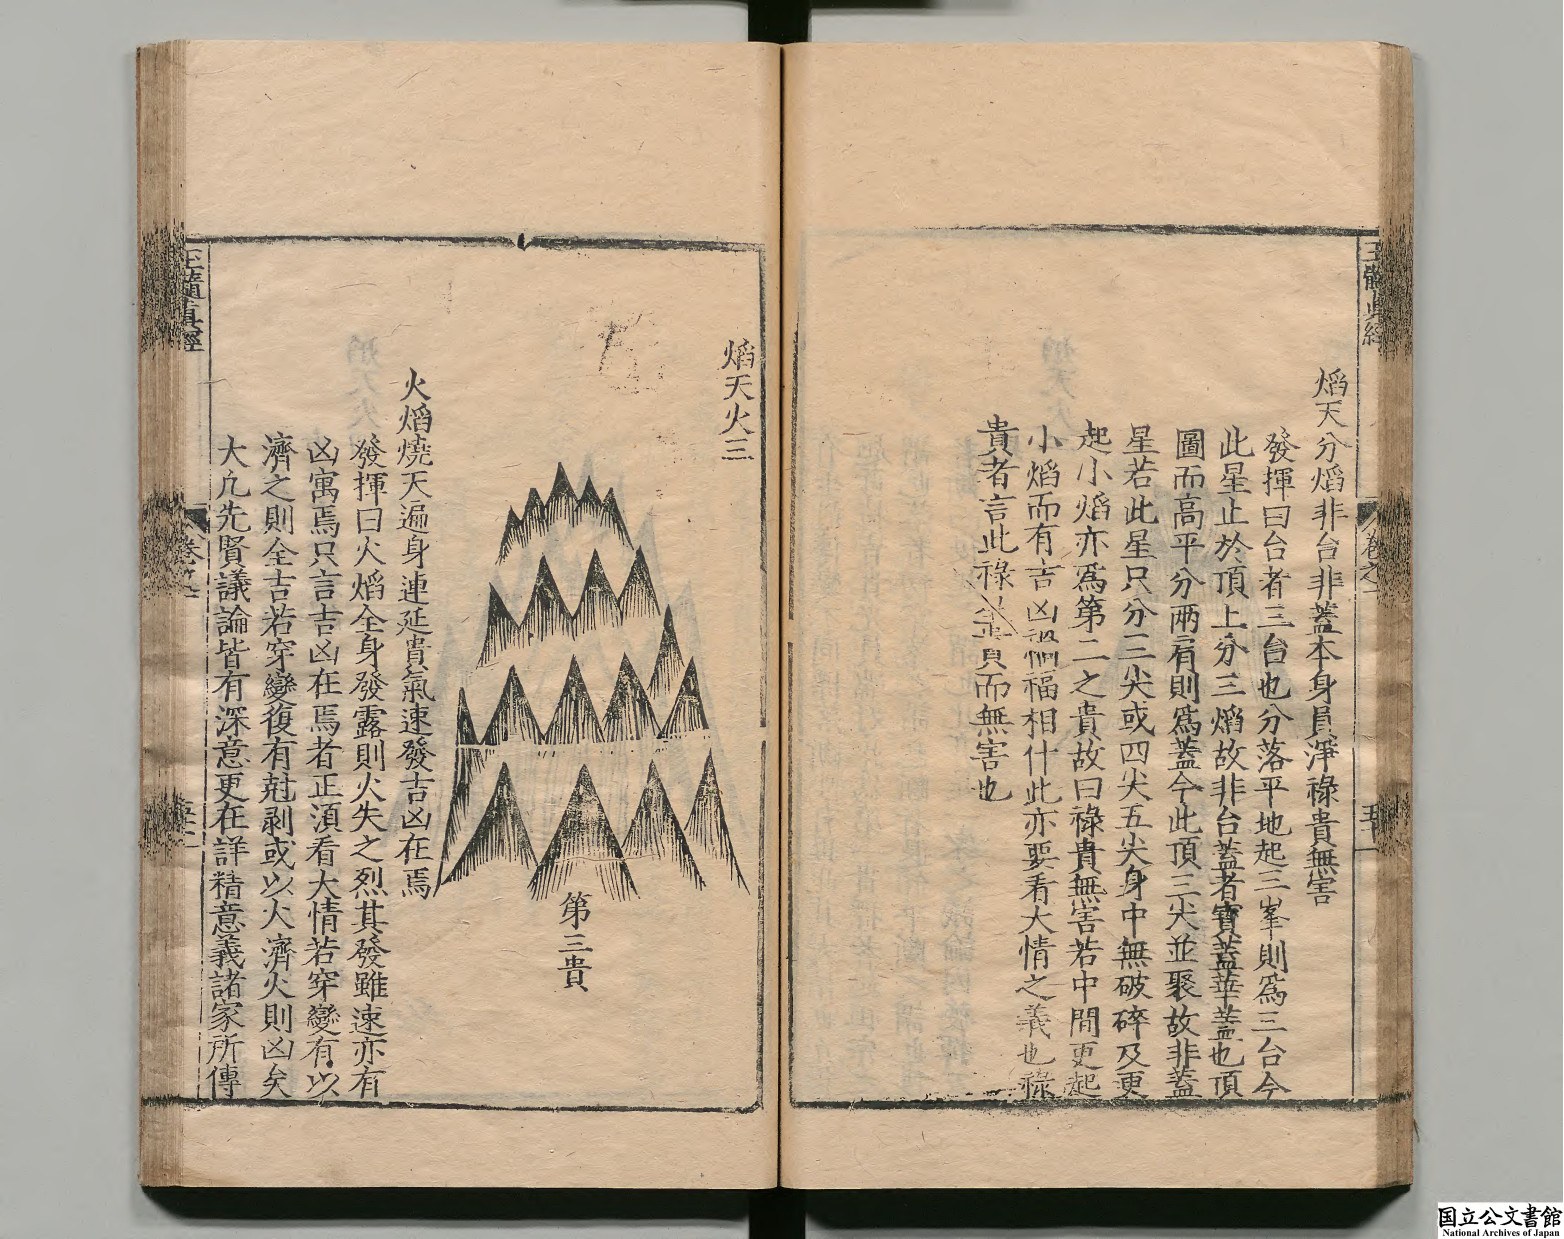 玉髓真經
卷之
焰天分焰非台非蓋本身員淨祿貴無害
發揮曰台者三台也分落平地起三峯則為三台今
此星止於頂上分三焰故非台蓋者寶蓋華蓋也頂
圖而高平分兩肩則為蓋今此頂三尖並聚故非蓋
星若此星只分三尖或四尖五尖身中無破碎及更
起小焰亦為第二之貴故曰祿貴無害若中間更起
小焰而有吉凶禍福相什此亦要看大情之義也祿
貴者言此祿貴而無害也
焰天火三
第三貴
火焰燒天遍身連延貴氣速發吉凶在焉
發揮曰火焰全身發露則火失之烈其發雖速亦有
凶寓焉只言吉凶在焉者正須看大情若穿變有以
濟之則全吉若穿變復有尅剥或以火濟火則凶矣
大凡先賢議論皆有深意更在詳精意義諸家所傳
玉髓真經
卷之
国立公文書館
National Archives of Japan